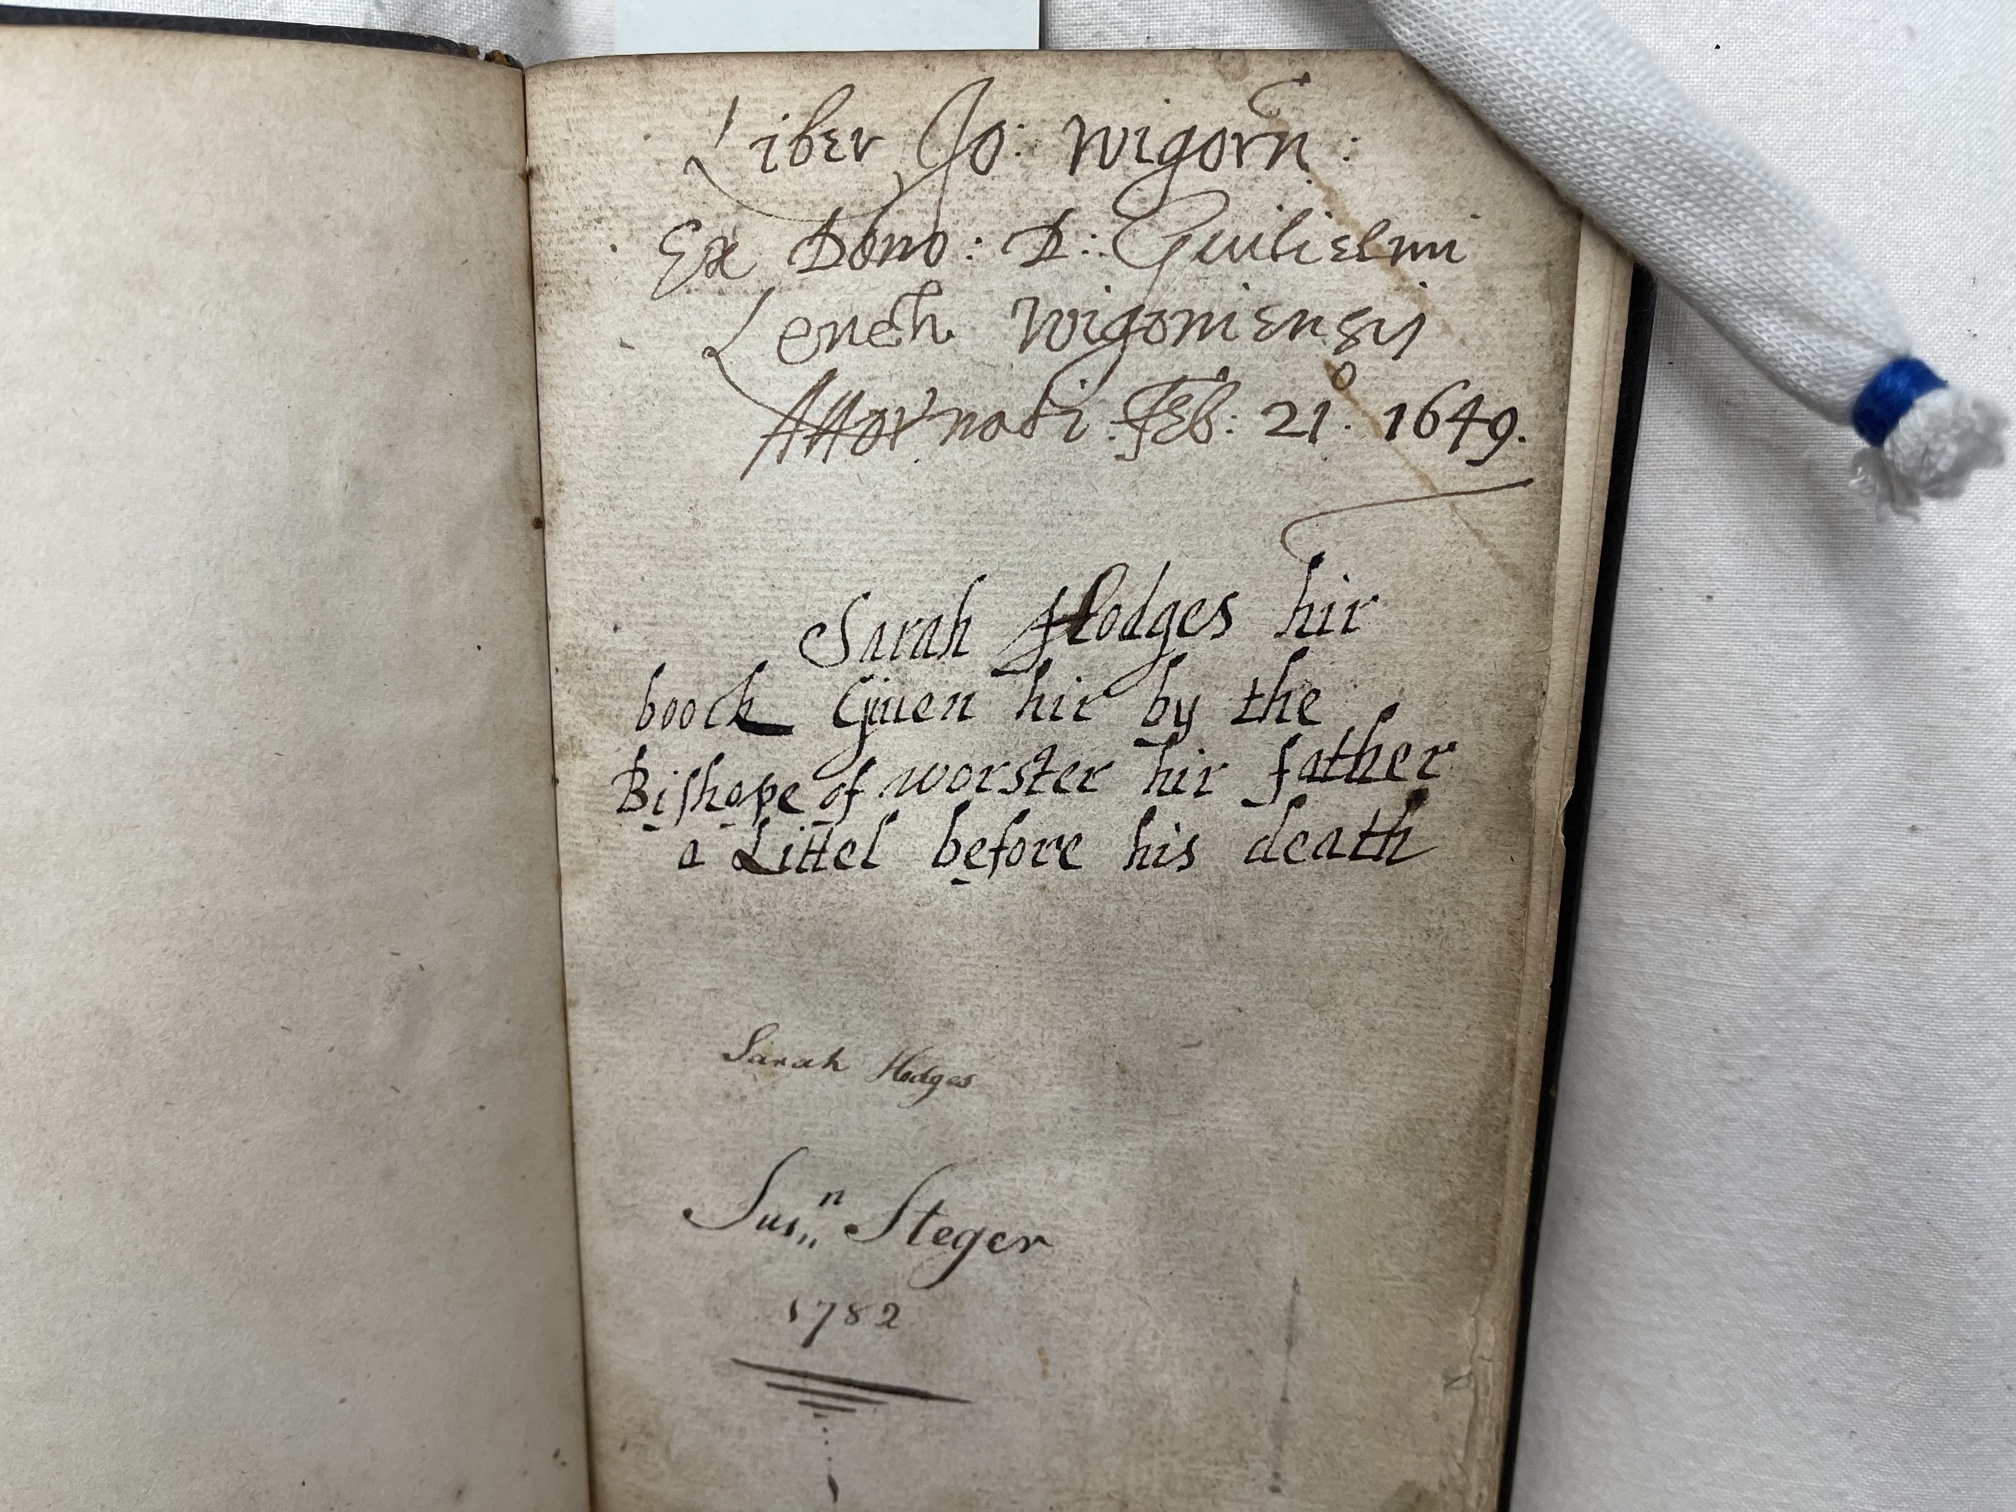 Liber Jo: Wigorñ:
Ex Dono: D: Guilielmi
Lench Wigorniensis
Attornati: Feb: 21º. 1649.
Sarah Hodges hir
boock Giuen hir by the
Bishope of worster hir father
a Littel before his death
Sarah Hodges
Susⁿ Steger
1782